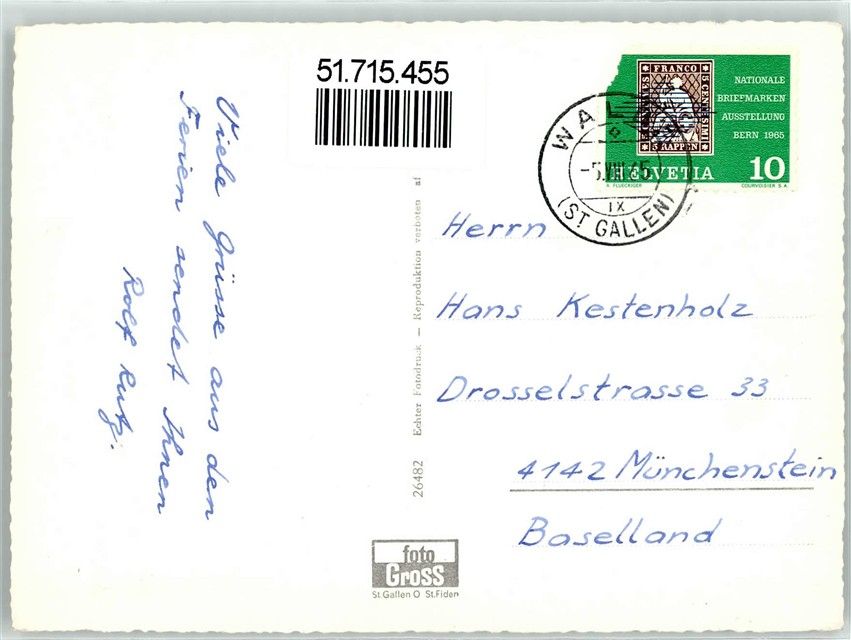 51.715.455
Viele Grüsse aus den
Ferien sendet Ihnen
Rolf Rutz.
26482 Echter Fotodruck — Reproduktion verboten
foto
Gross
St. Gallen O St. Fiden
FRANCO
5 CENTESIMI
5 RAPPEN
NATIONALE
BRIEFMARKEN
AUSSTELLUNG
BERN 1965
HELVETIA 10
COURVOISIER S.A.
-5.VIII.65
IX
(ST GALLEN)
Herrn
Hans Kestenholz
Drosselstrasse 33
4142 Münchenstein
Baselland